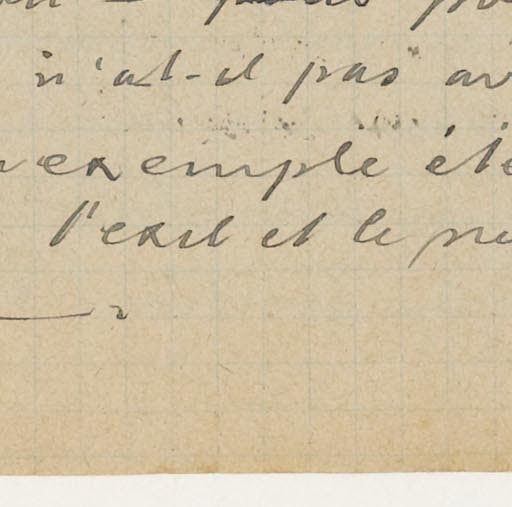 n'at-il pas av
exemple éte
l'exil et le